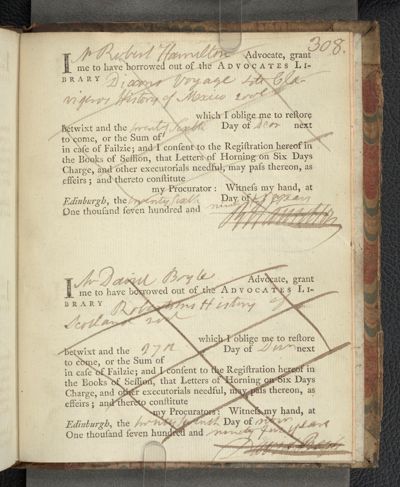 308.
I Mr Robert Hamilton Advocate, grant
me to have borrowed out of the ADVOCATES LI-
BRARY Dixons Voyage 4to Cla-
vigeros History of Mexico 2 vol
which I oblige me to reſtore
betwixt and the twenty sixth Day of next
to come, or the Sum of
in caſe of Failzie; and I conſent to the Regiſtration hereof in
the Books of Seſſion, that Letters of Horning on Six Days
Charge, and other executorials needful, may paſs thereon, as
effeirs; and thereto conſtitute
my Procurator: Witneſs my hand, at
Edinburgh, the twenty sixth Day of
One thouſand ſeven hundred and ninety years
I Mr David Boyle Advocate, grant
me to have borrowed out of the ADVOCATES LI-
BRARY Robertsons History of
Scotland 2 vol
which I oblige me to reſtore
betwixt and the 27th Day of next
to come, or the Sum of
in caſe of Failzie; and I conſent to the Regiſtration hereof in
the Books of Seſſion, that Letters of Horning on Six Days
Charge, and other executorials needful, may paſs thereon, as
effeirs; and thereto conſtitute
my Procurators: Witneſs my hand, at
Edinburgh, the twenty seventh Day of
One thouſand ſeven hundred and ninety five years
David Boyle